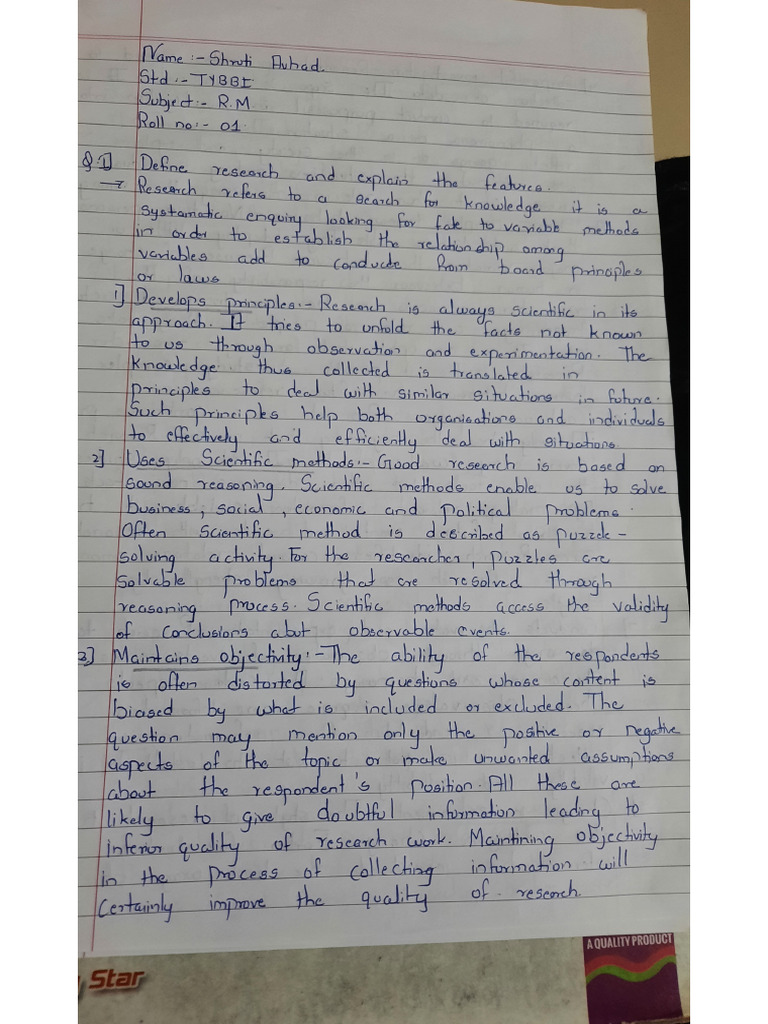 Name :- Shruti Avhad.
Std :- TYBBI
Subject :- R.M
Roll no :- 01.
Q.1] Define research and explain the features.
→ Research refers to a search for knowledge it is a
systematic enquiry looking for fate to variable methods
in order to establish the relationship among
variables add to conducte from board principles
or laws
1] Develops principles :- Research is always scientific in its
approach. It tries to unfold the facts not known
to us through observation and experimentation. The
knowledge thus collected is translated in
principles to deal with similar situations in future.
Such principles help both organisations and individuals
to effectively and efficiently deal with situations.
2] Uses Scientific methods :- Good research is based on
sound reasoning. Scientific methods enable us to solve
business, social, economic and political problems.
Often scientific method is described as puzzek-
solving activity. For the researcher, puzzles are
solvable problems that are resolved through
reasoning process. Scientific methods access the validity
of conclusions abut observable events.
3] Maintains objectivity :- The ability of the respondents
is often distorted by questions whose content is
biased by what is included or excluded. The
question may mention only the positive or negative
aspects of the topic or make unwanted assumptions
about the respondent's position. All these are
likely to give doubtful information leading to
inferior quality of research work. Maintining objectivity
in the process of collecting information will
certainly improve the quality of research.
Star
A QUALITY PRODUCT